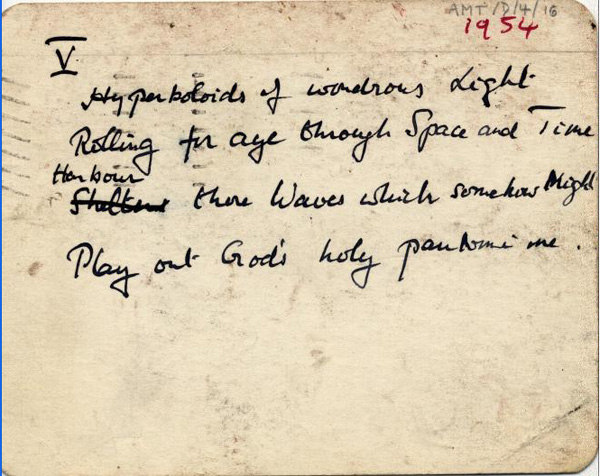 AMT/D/4/16
1954
V
Hyperboloids of wondrous Light
Rolling for aye through Space and Time
Harbour
Shelter those Waves which somehow Might
Play out God's holy pantomime.